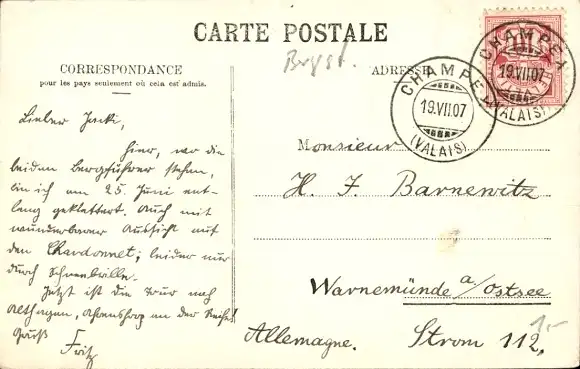 CARTE POSTALE
CORRESPONDANCE
pour les pays seulement où cela est admis.
ADRESSE
CHAMPEX
19.VII.07
(VALAIS)
CHAMPEX
19.VII.07
(VALAIS)
Lieber
Hier, wo die
beiden Bergführer stehen,
bin ich am 25. Juni ent-
lang geklettert. Auch mit
wunderbarer Aussicht auf
den Chardonnet; leider nur
durch Schneebrille.
Jetzt ist die Tour nach
Althagen, Ahrenshoop an der Reihe!
Gruß
Fritz
Monsieur
H. J. Barnewitz
Warnemünde a/Ostsee
Strom 112,
Allemagne.
1.-